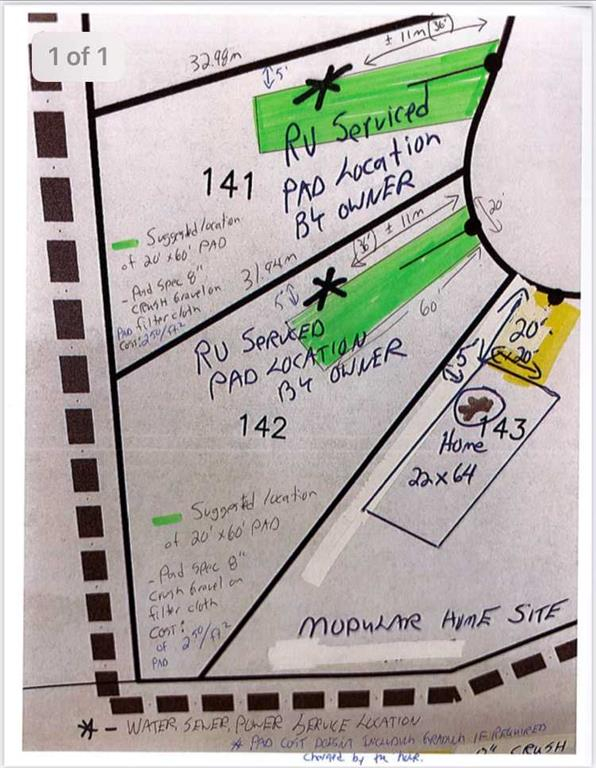 1 of 1
32.98m
± 11m (36')
5'
RV Serviced
PAD Location
By OWNER
141
Suggested location
of 20'x60' PAD
- Pad Spec 8"
crush gravel on
filter cloth
PAD
Cost: 2.50/ft²
31.94m
(36') ± 11m
20'
5'
60'
RV SERVICED
PAD LOCATION
By OWNER
142
20'
5'
143
Home
22x64
Suggested location
of 20'x60' PAD
- Pad Spec 8"
crush gravel on
filter cloth
COST:
OF 2.50/ft²
PAD
MODULAR HOME SITE
* - WATER, SEWER, POWER SERVICE LOCATION
* PAD COST DOESN'T INCLUDE IF REQUIRED
Charged by the hour.
CRUSH